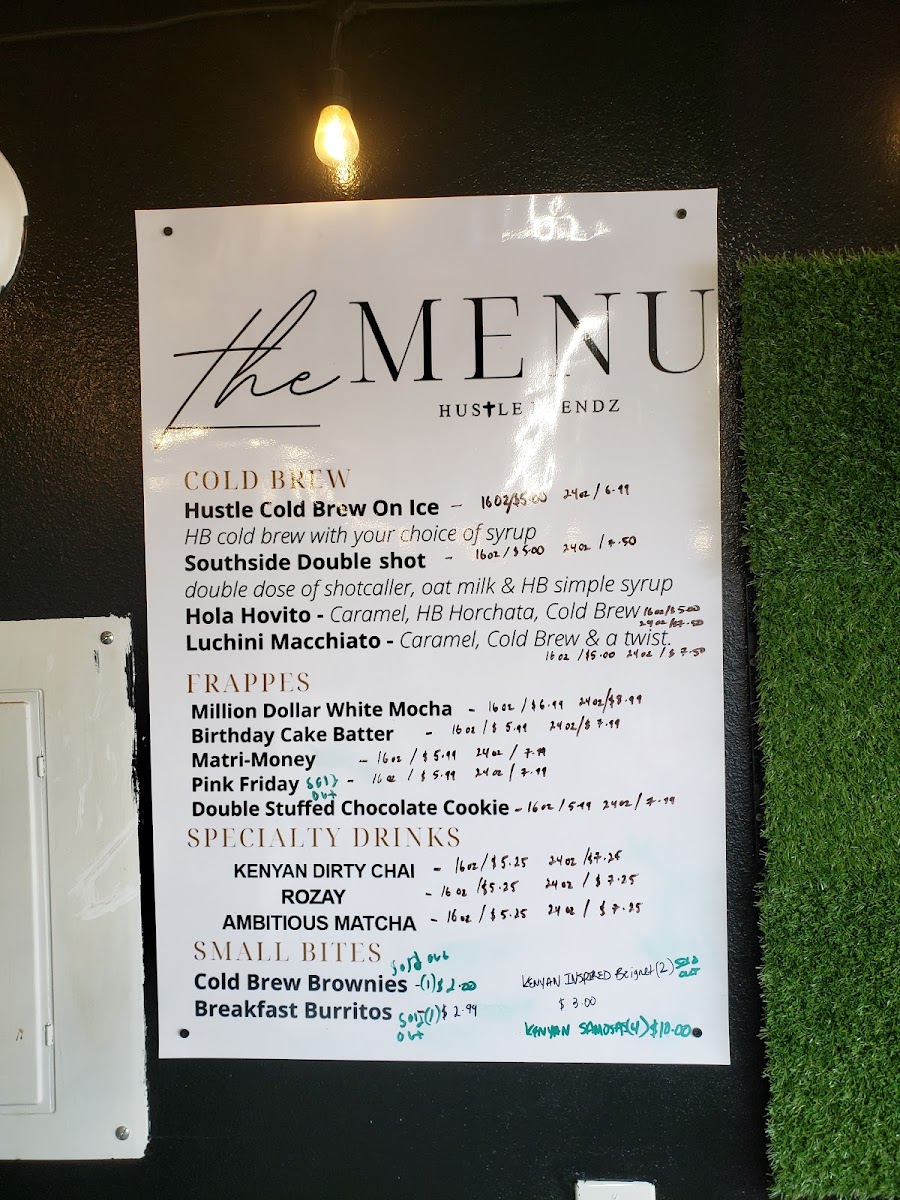 the MENU
HUS✝LE ENDZ
COLD BREW
Hustle Cold Brew On Ice - 16oz/$5.00 24oz / 6.99
HB cold brew with your choice of syrup
Southside Double shot - 16oz / $5.00 24oz / 7.50
double dose of shotcaller, oat milk & HB simple syrup
Hola Hovito - Caramel, HB Horchata, Cold Brew 16oz/$5.00
24oz/$7.50
Luchini Macchiato - Caramel, Cold Brew & a twist.
16oz / $5.00 24oz / $7.50
FRAPPES
Million Dollar White Mocha - 16oz / $6.99 24oz/$8.99
Birthday Cake Batter - 16oz / $ 5.99 24oz/$ 7.99
Matri-Money - 16oz / $ 5.99 24oz / 7.99
Pink Friday Sold out - 16oz / $ 5.99 24oz / 7.99
Double Stuffed Chocolate Cookie - 16oz / 5.99 24oz / 7.99
SPECIALTY DRINKS
KENYAN DIRTY CHAI - 16oz / $5.25 24oz /$7.25
ROZAY - 16oz /$5.25 24oz / $ 7.25
AMBITIOUS MATCHA - 16oz / $5.25 24oz / $ 7.25
SMALL BITES
Sold out
Cold Brew Brownies -(1)$2.00
Breakfast Burritos Sold out (1)$ 2.99
KENYAN INSPIRED Beignet(2) Sold out
$ 3.00
KENYAN SAMOSAS(4) $10.00